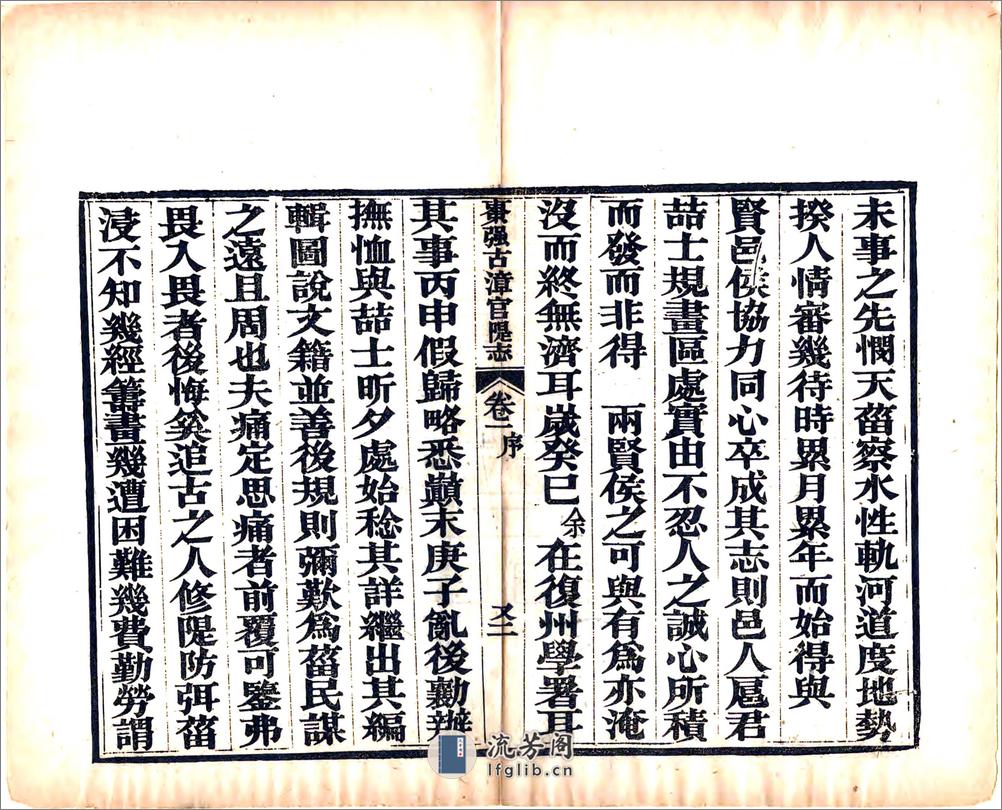 未事之先憫天菑察水性軌河道度地勢
揆人情審幾待時累月累年而始得與
賢邑侯協力同心卒成其志則邑人扈君
喆士規畫區處實由不忍人之誠心所積
而發而非得　兩賢侯之可與有爲亦淹
沒而終無濟耳歲癸巳余在復州學署耳
棗强古漳官隄志　卷一序　又二
其事丙申假歸略悉巔末庚子亂後勷辦
撫恤與喆士昕夕處始稔其詳繼出其編
輯圖說文籍並善後規則彌歎爲菑民謀
之遠且周也夫痛定思痛者前覆可鑒弗
畏入畏者後悔奚追古之人修隄防弭菑
浸不知幾經籌畫幾遭困難幾費勤勞謂
流芳阁
lfglib.cn